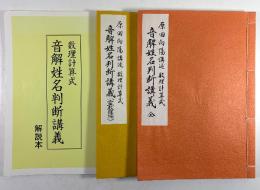 数理計算式
音解姓名判断講義
解説本
原田向陽講述 数理計算式
音解姓名判断講義
原田向陽講述 数理計算式
音解姓名判断講義 全